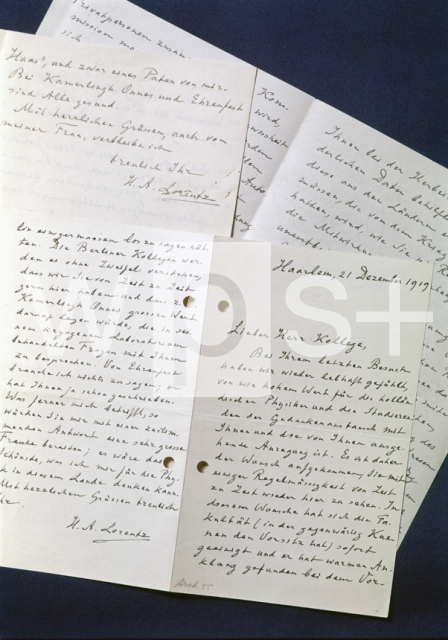 Privatpersonen zusam.
mission
sich
Haas", und zwar eines Paten von mir.
Bei Kamerlingh Onnes und Ehrenfest
sind Alle gesund.
Mit herzlichen Grüssen, auch von
meiner Frau, verbleibe ich
treulich Ihr
H. A. Lorentz
Kom.
wird,
Ihnen bei der
derlichen Daten
diese aus den Ländern
müssen, die von dem Krieg
haben, wird, wie Sie
die Mitwirkung
ein einigermaassen loszusagen hät
ten. Die Berliner Kollegen wer
den es ohne Zweifel verstehen,
dass wir Sie von Zeit zu Zeit
gern hier haben und dass z.
Kamerlingh Onnes grossen Wert
darauf legen würde, die in sei
nem kryogenen Laboratorium
behandelten Fragen mit Ihnen
zu besprechen. Von Ehrenfest
brauche ich nichts zu sagen; er
hat Ihnen ja schon geschrieben.
Was ferner mich betrifft, so
würden Sie mir mit einer zustim
menden Antwort eine sehr grosse
Freude bereiten; es wäre das
Schönste, was ich mir für die Phy
sik in diesem Lande denken kann.
Mit herzlichen Grüssen treulich
Ihr
H. A. Lorentz
Haarlem, 21 Dezember 1919
Lieber Herr Kollege,
Bei Ihrem letzten Besuch
haben wir wieder lebhaft gefühlt,
von wie hohem Wert für die hollän
dischen Physiker und die Studieren
den der Gedankenaustausch mit
Ihnen und die von Ihnen ausge
hende Anregung ist. Es ist daher
der Wunsch aufgekommen, Sie mit
einiger Regelmässigkeit von Zeit
zu Zeit wieder hier zu sehen. In
diesem Wunsche hat sich die Fa
kultät (in der gegenwärtig Kae
nen den Vorsitz hat) sofort
geeinigt und er hat warmen An
klang gefunden bei dem Vor-
vps+